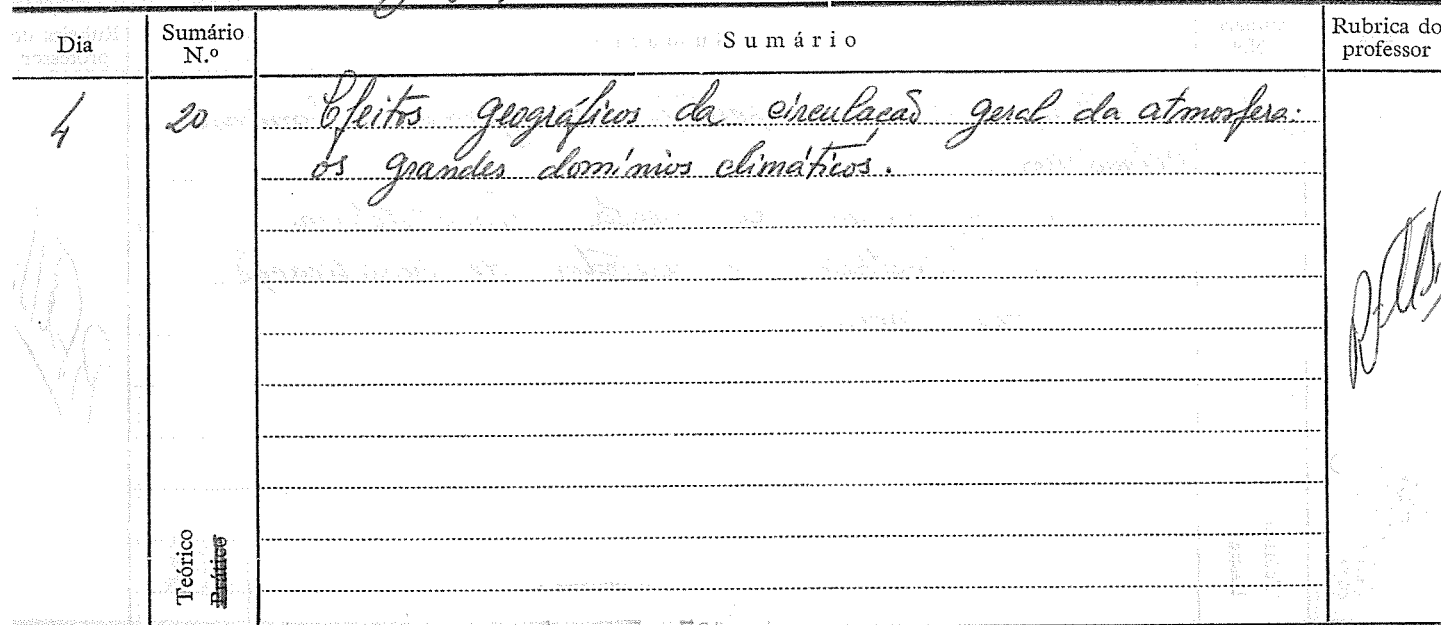 Dia
Sumário N.º
Sumário
Rubrica do professor
4
20
Efeitos geográficos da circulação geral da atmosfera:
os grandes domínios climáticos.
Teórico
Prático